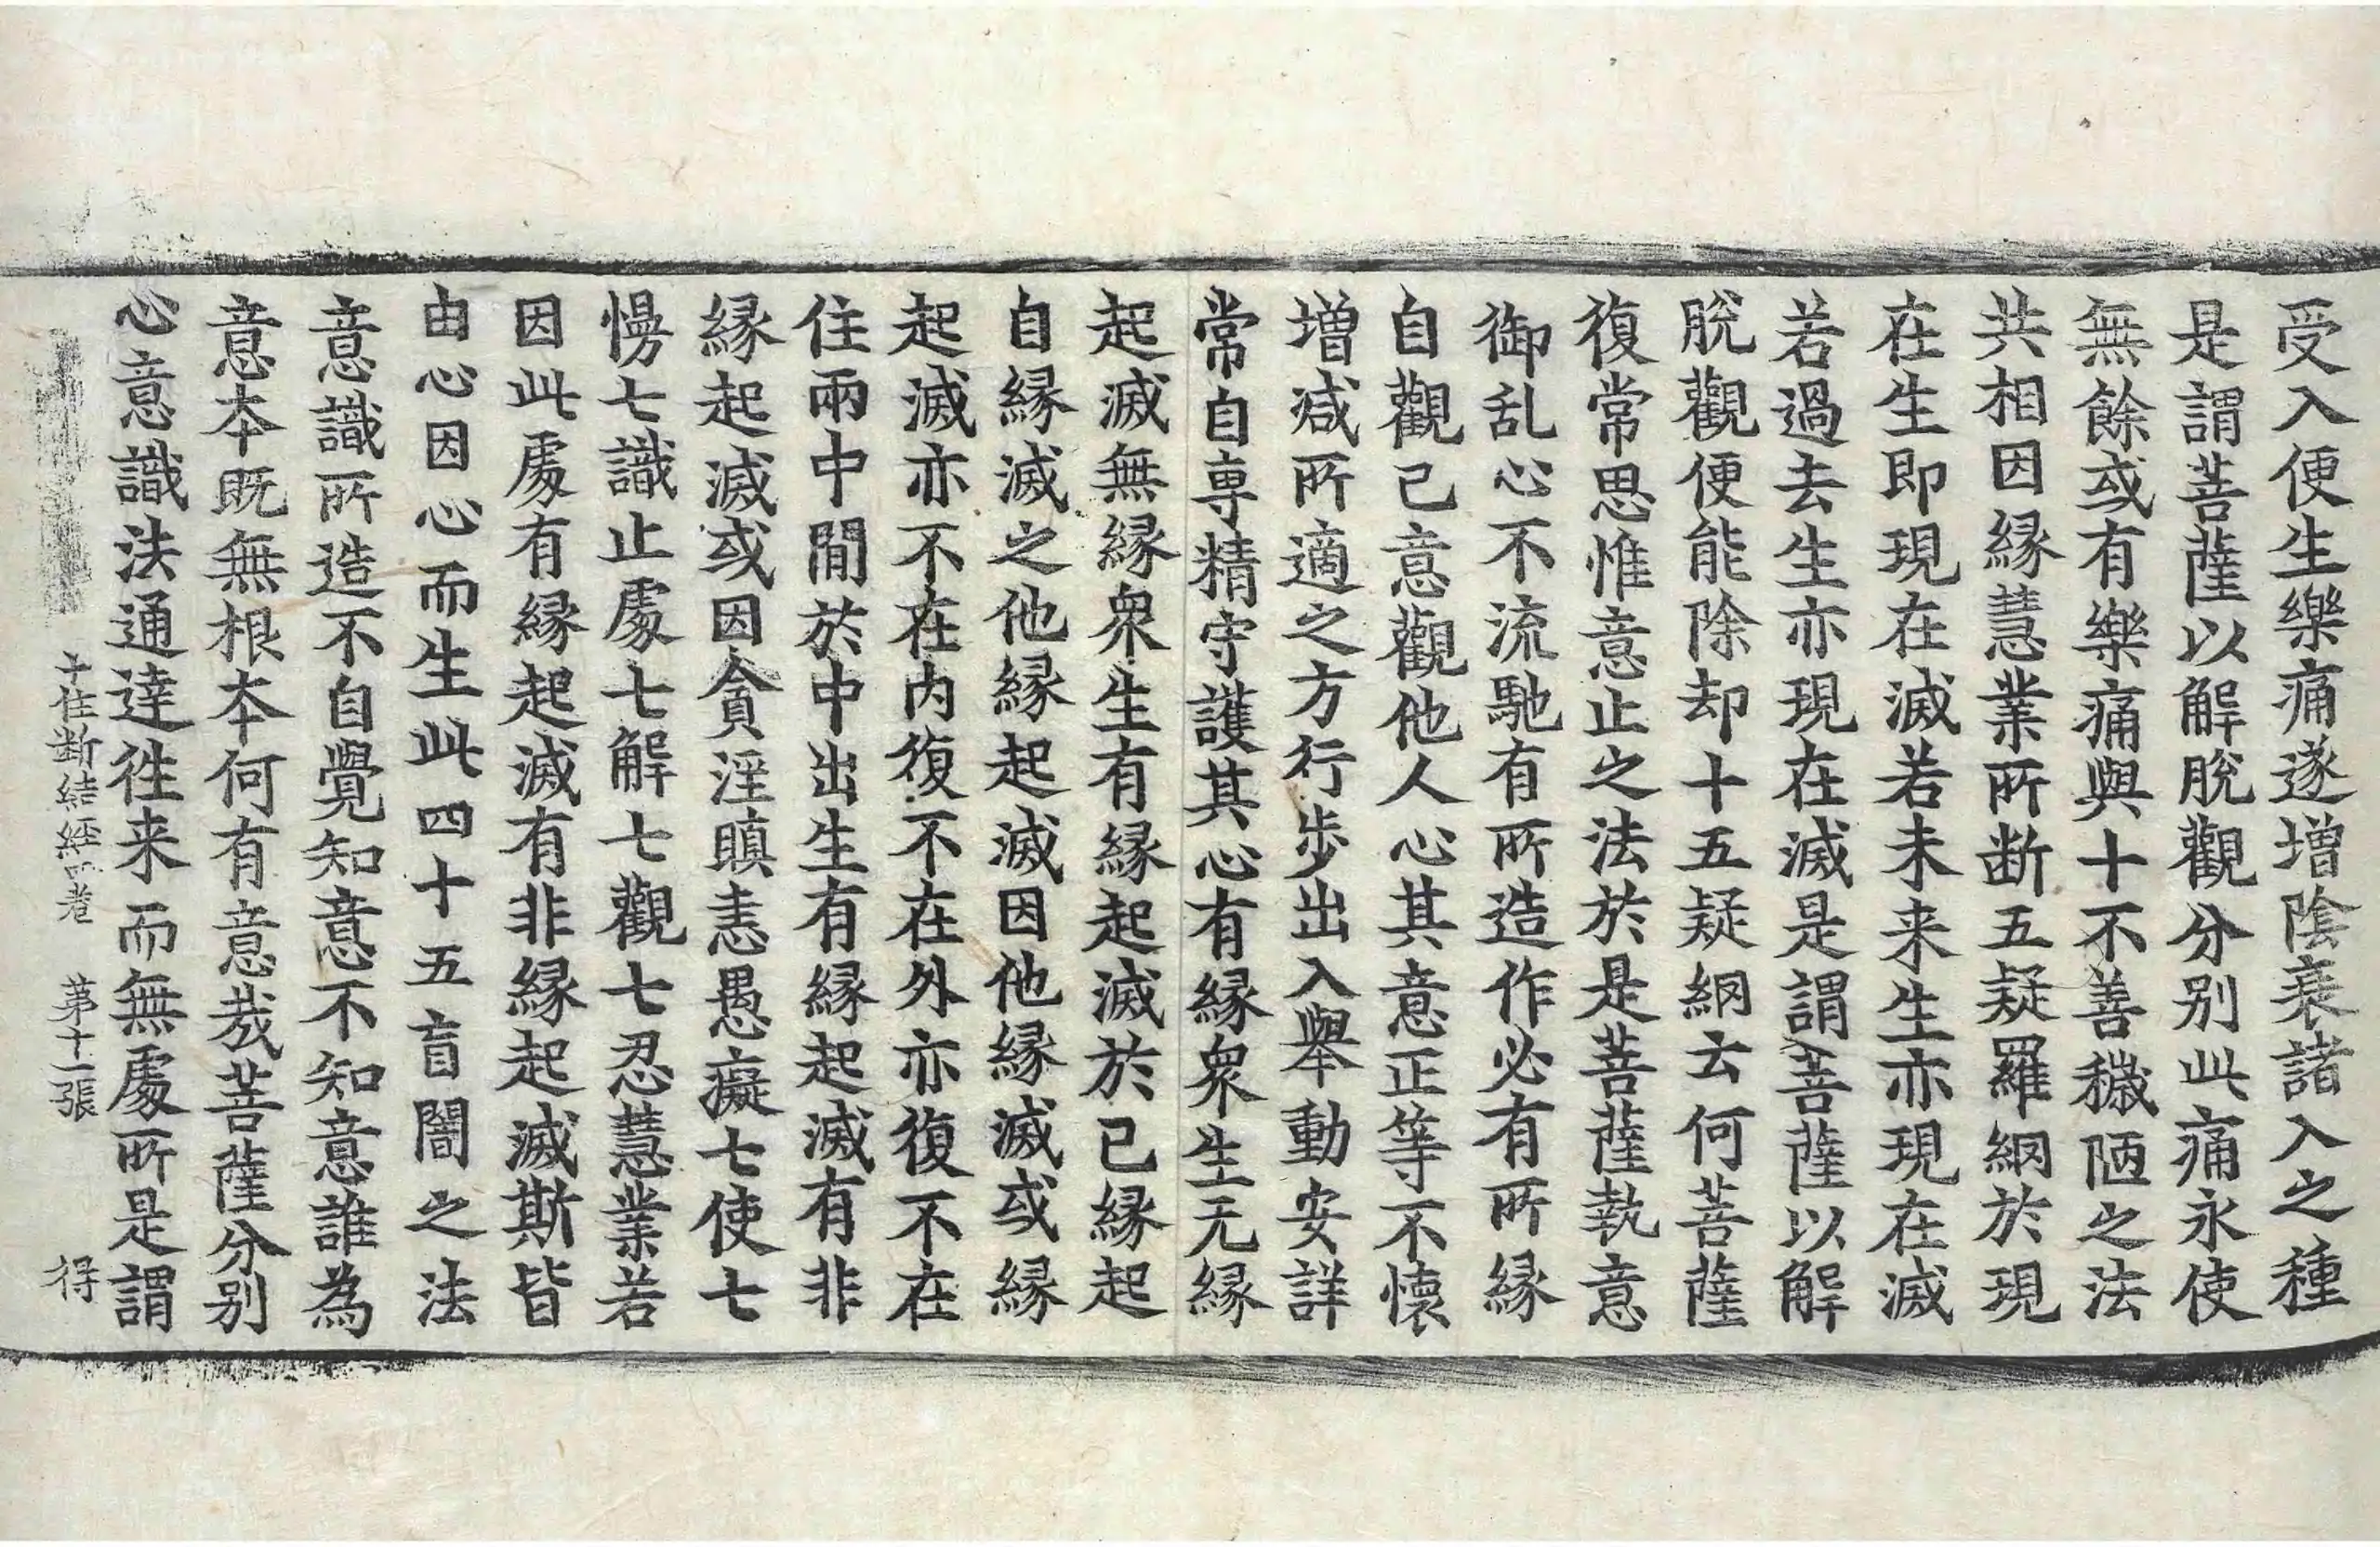 受入便生樂痛遂增陰衰諸入之種
是謂菩薩以解脫觀分別此痛永使
無餘或有樂痛與十不善穢陋之法
共相因緣慧業所断五疑羅網於現
在生即現在滅若未来生亦現在滅
若過去生亦現在滅是謂菩薩以解
脫觀便能除却十五疑網云何菩薩
復常思惟意止之法於是菩薩執意
御乱心不流馳有所造作必有所緣
自觀己意觀他人心其意正等不懷
增減所適之方行步出入舉動安詳
常自專精守護其心有緣衆生无緣
起滅無緣衆生有緣起滅於己緣起
自緣滅之他緣起滅因他緣滅或緣
起滅亦不在内復不在外亦復不在
住兩中間於中出生有緣起滅有非
緣起滅或因貪淫瞋恚愚癡七使七
慢七識止處七解七觀七忍慧業若
因此處有緣起滅有非緣起滅斯皆
由心因心而生此四十五盲闇之法
意識所造不自覺知意不知意誰為
意本既無根本何有意哉菩薩分別
心意識法通達往来而無處所是謂
十住断結經 卷 第十一張 得